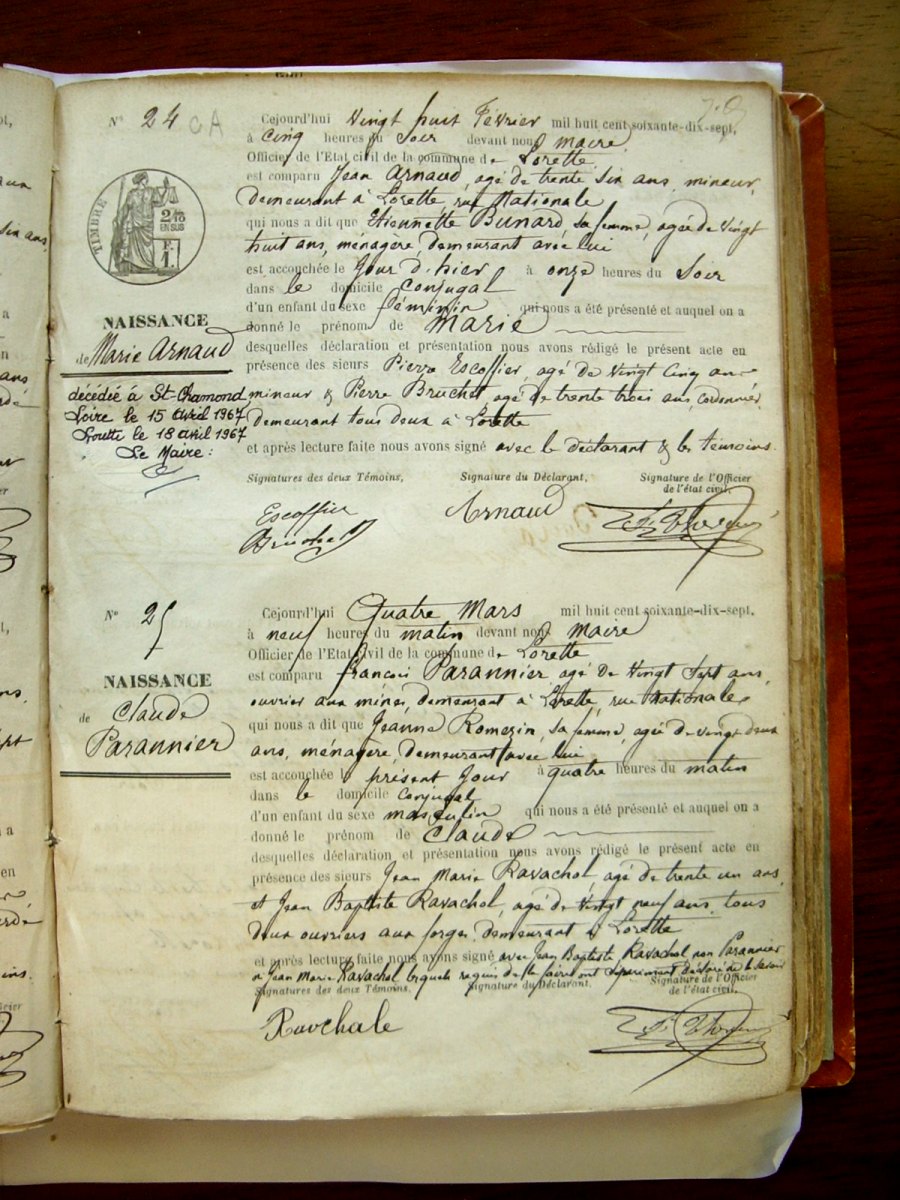 N° 24 CA
Cejourd'hui Vingt huit Février mil huit cent soixante-dix-sept,
à Cinq heures du Soir devant nous Maire
Officier de l'Etat civil de la commune de Lorette
est comparu Jean Arnaud, agé de trente six ans, mineur,
demeurant à Lorette, rue Nationale
qui nous a dit que Etiennette Bunard, sa femme, agée de Vingt
huit ans, ménagère, demeurant avec lui
est accouchée le Jour d'hier à onze heures du Soir
dans le domicile Conjugal
d'un enfant du sexe féminin qui nous a été présenté et auquel on a
donné le prénom de Marie
desquelles déclaration et présentation nous avons rédigé le présent acte en
présence des sieurs Pierre Escoffier, agé de Vingt Cinq ans
mineur & Pierre Bruchet agé de trente trois ans, Cordonnier,
demeurant tous deux à Lorette
et après lecture faite nous avons signé avec le déclarant & les témoins.
Signatures des deux Témoins,
Signature du Déclarant.
Signature de l'Officier
de l'état civil.
Escoffier
Bruchet
Arnaud
TIMBRE
2/10
EN SUS
NAISSANCE
de Marie Arnaud
décédée à St-Chamond
Loire le 15 avril 1967
Lorette le 18 avril 1967
Le Maire :
N° 25
Cejourd'hui Quatre Mars mil huit cent soixante-dix-sept,
à neuf heures du matin devant nous Maire
Officier de l'Etat Civil de la commune de Lorette
est comparu françois Parannier agé de Vingt Sept ans,
ouvrier aux mines, demeurant à Lorette, rue Nationale
qui nous a dit que Jeanne Romezin, sa femme, agée de vingt deux
ans, ménagère, demeurant avec lui
est accouchée présent Jour à quatre heures du matin
dans le domicile Conjugal
d'un enfant du sexe masculin qui nous a été présenté et auquel on a
donné le prénom de Claude
desquelles déclaration et présentation nous avons rédigé le présent acte en
présence des sieurs Jean Marie Ravachol, agé de trente un ans
et Jean Baptiste Ravachol, agé de Vingt neuf ans, tous
deux ouvriers aux forges, demeurant à Lorette
et après lecture faite nous avons signé avec Jean Baptiste Ravachol non Parannier
ni Jean Marie Ravachol lesquels requis de le faire ont séparément déclaré ne le savoir
Signatures des deux Témoins.
Signature du Déclarant.
Signature de l'Officier
de l'état civil.
Ravchale
NAISSANCE
de Claude
Parannier